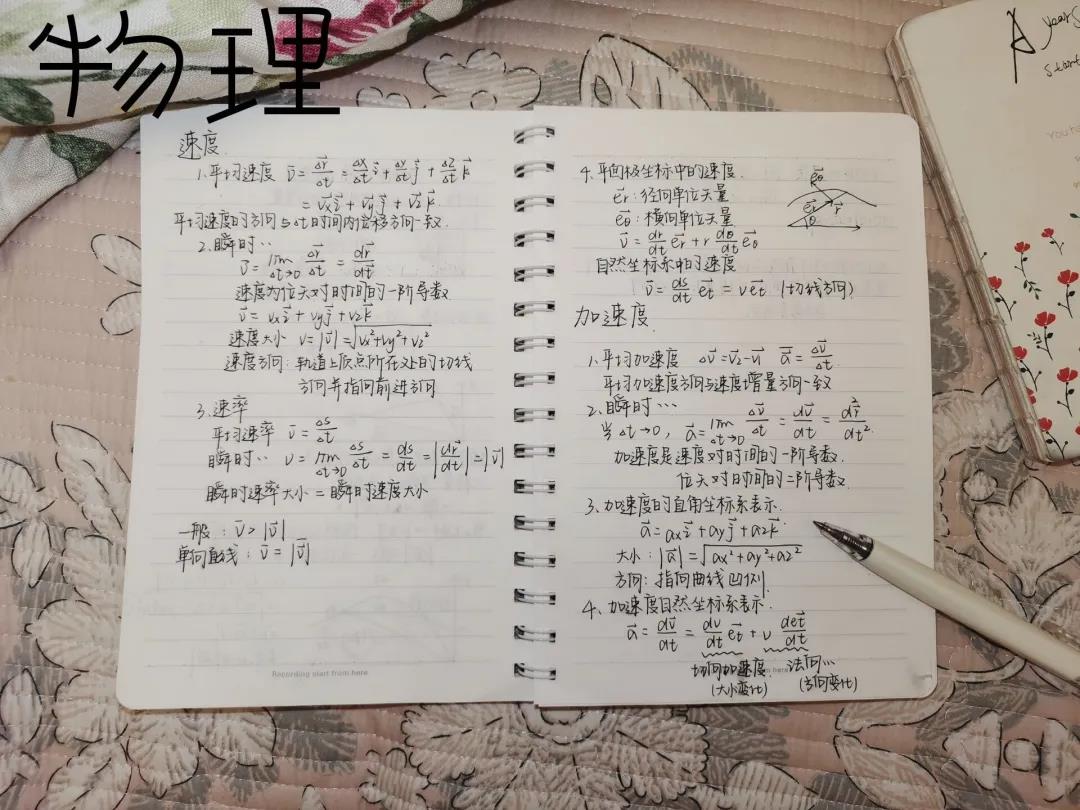 物理
速度
1.平均速度 v̄ = Δr⃗/Δt = Δx/Δt i⃗ + Δy/Δt j⃗ + Δz/Δt k⃗
= v̄x i⃗ + v̄y j⃗ + v̄z k⃗
平均速度的方向与Δt时间内位移方向一致.
2.瞬时··
v⃗ = lim Δt→0 Δr⃗/Δt = dr⃗/dt
速度为位矢对时间的一阶导数
v⃗ = vx i⃗ + vy j⃗ + vz k⃗
速度大小 v = |v⃗| = √(vx²+vy²+vz²)
速度方向: 轨道上质点所在处的切线
方向并指向前进方向
3.速率
平均速率 v̄ = Δs/Δt
瞬时·· v = lim Δt→0 Δs/Δt = ds/dt = |dr⃗/dt| = |v⃗|
瞬时速率大小 = 瞬时速度大小
一般: v̄ > |v̄|
单向直线: v̄ = |v̄|
Recording start from here
4.平面极坐标中的速度.
e⃗r: 径向单位矢量
e⃗θ: 横向单位矢量
v⃗ = dr/dt e⃗r + r dθ/dt e⃗θ
e⃗θ
e⃗r r⃗
θ
自然坐标系中的速度
v⃗ = ds/dt e⃗t = v e⃗t (切线方向)
加速度
1.平均加速度 Δv⃗ = v⃗2 - v⃗1 a⃗ = Δv⃗/Δt
平均加速度方向与速度增量方向一致
2.瞬时···
当Δt→0, a⃗ = lim Δt→0 Δv⃗/Δt = dv⃗/dt = d²r⃗/dt²
加速度是速度对时间的一阶导数.
位矢对时间的二阶导数.
3.加速度的直角坐标系表示.
a⃗ = ax i⃗ + ay j⃗ + az k⃗
大小: |a⃗| = √(ax²+ay²+az²)
方向: 指向曲线凹侧
4.加速度自然坐标系表示.
a⃗ = dv⃗/dt = dv/dt e⃗t + v de⃗t/dt
切向加速度 法向···
(大小变化) (方向变化)
from here
A year
start